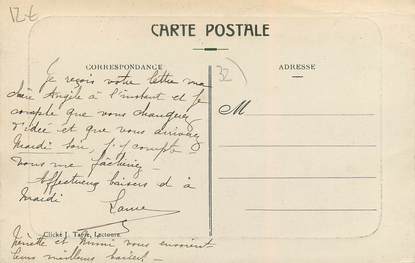 12 €
CARTE POSTALE
CORRESPONDANCE
ADRESSE
32)
Je reçois votre lettre ma
chère Angèle à l'instant et je
compte que vous changerez
d'idée et que vous arriverez
Mardi soir, j'y compte
vous me fâcheriez
Affectueux baisers et à
mardi
M
Cliché J. Tapie, Lectoure.
et Mimi vous envoient
leurs meilleurs baisers